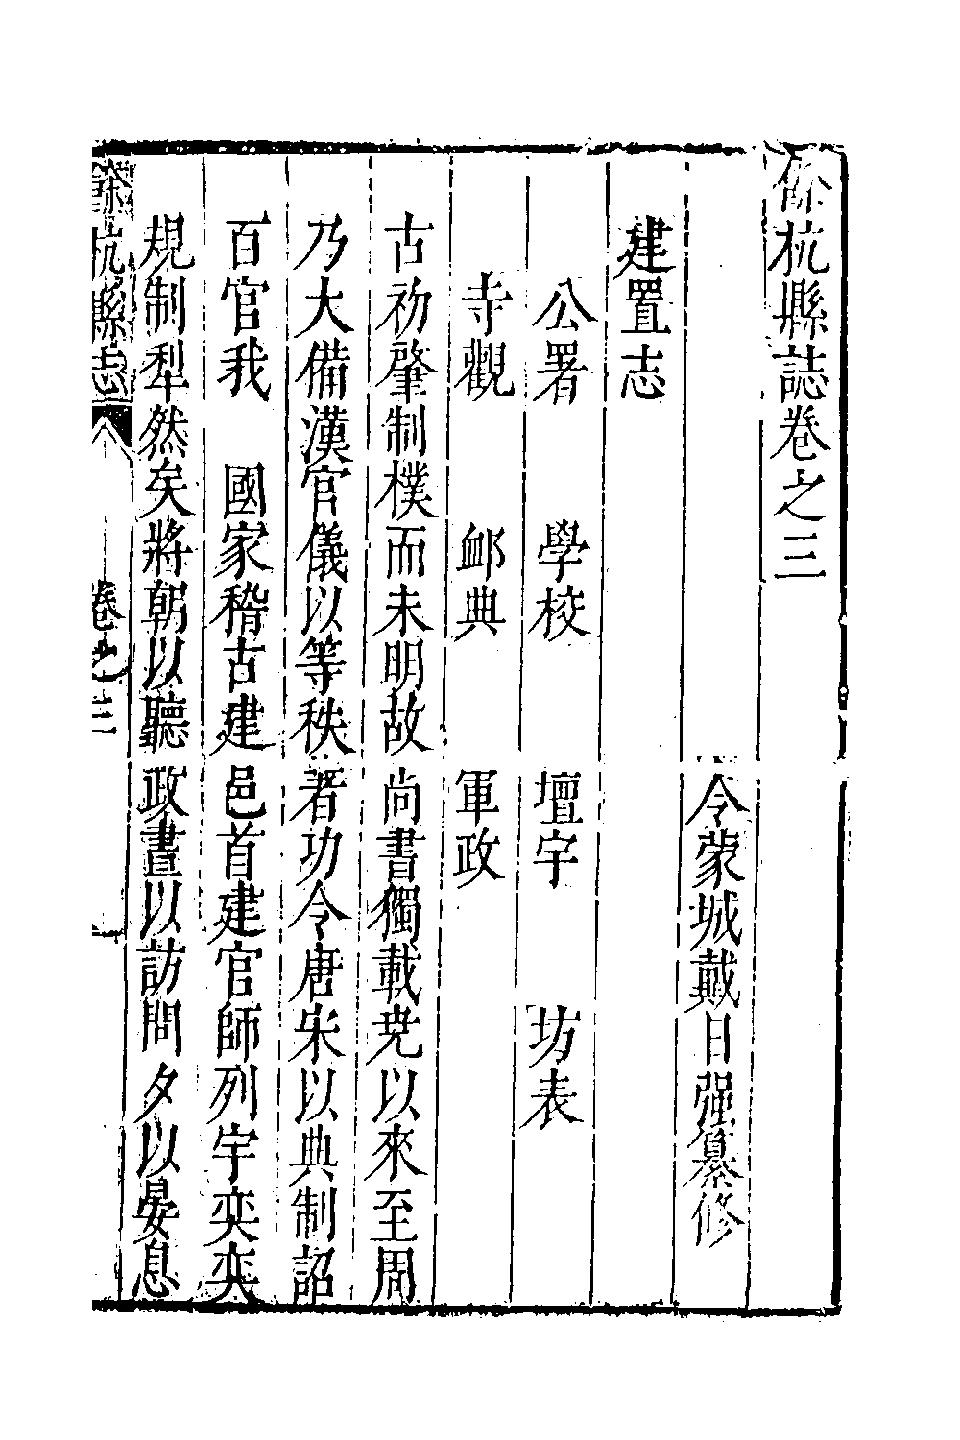 餘杭縣誌卷之三
令蒙城戴日强纂修
建置志
公署 學校 壇宇 坊表
寺觀 䘏典 軍政
古初肇制樸而未明故尚書獨載尭以來至周
乃大備漢官儀以等秩著功令唐宋以典制詔
百官我 國家稽古建邑首建官師列宇奕奕
規制犁然矣將朝以聽政晝以訪問夕以晏息
餘杭縣志 卷之三